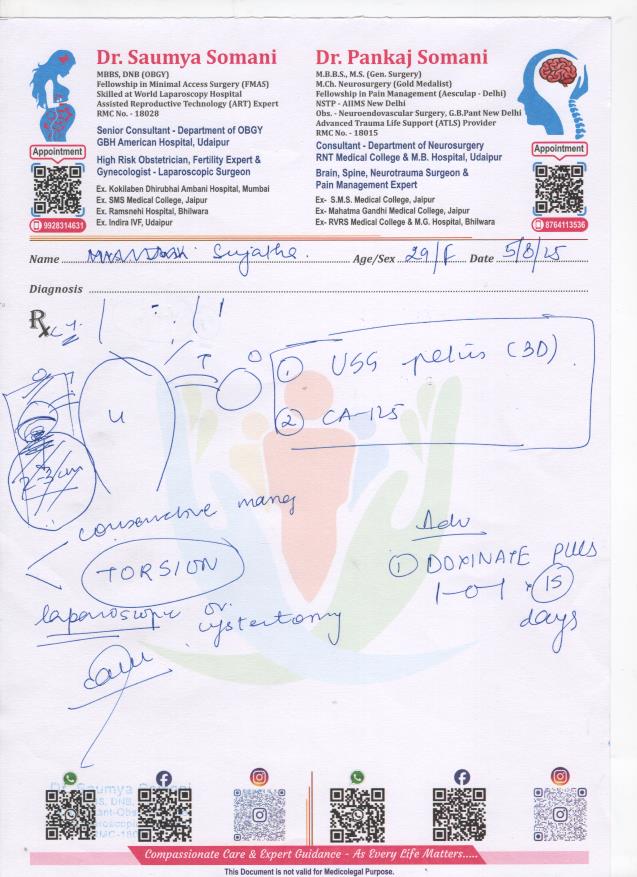 Dr. Saumya Somani
MBBS, DNB (OBGY)
Fellowship in Minimal Access Surgery (FMAS)
Skilled at World Laparoscopy Hospital
Assisted Reproductive Technology (ART) Expert
RMC No. - 18028
Senior Consultant - Department of OBGY
GBH American Hospital, Udaipur
High Risk Obstetrician, Fertility Expert &
Gynecologist - Laparoscopic Surgeon
Ex. Kokilaben Dhirubhai Ambani Hospital, Mumbai
Ex. SMS Medical College, Jaipur
Ex. Ramsnehi Hospital, Bhilwara
Ex. Indira IVF, Udaipur
Appointment
9928314631
Dr. Pankaj Somani
M.B.B.S., M.S. (Gen. Surgery)
M.Ch. Neurosurgery (Gold Medalist)
Fellowship in Pain Management (Aesculap - Delhi)
NSTP - AIIMS New Delhi
Obs. - Neuroendovascular Surgery, G.B.Pant New Delhi
Advanced Trauma Life Support (ATLS) Provider
RMC No. - 18015
Consultant - Department of Neurosurgery
RNT Medical College & M.B. Hospital, Udaipur
Brain, Spine, Neurotrauma Surgeon &
Pain Management Expert
Ex- S.M.S. Medical College, Jaipur
Ex- Mahatma Gandhi Medical College, Jaipur
Ex- RVRS Medical College & M.G. Hospital, Bhilwara
Appointment
8764113536
Name Sujatha. Age/Sex 29/F Date 5/8/25
Diagnosis
Rx
T O
U
① USG pelvis (3D)
② CA-125
2-3 cm
conservative manag
TORSION
laparoscopic or.
cystectomy
Adv
① DOXINATE PLUS
1-0-1 × 15
days
Compassionate Care & Expert Guidance - As Every Life Matters.....
This Document is not valid for Medicolegal Purpose.